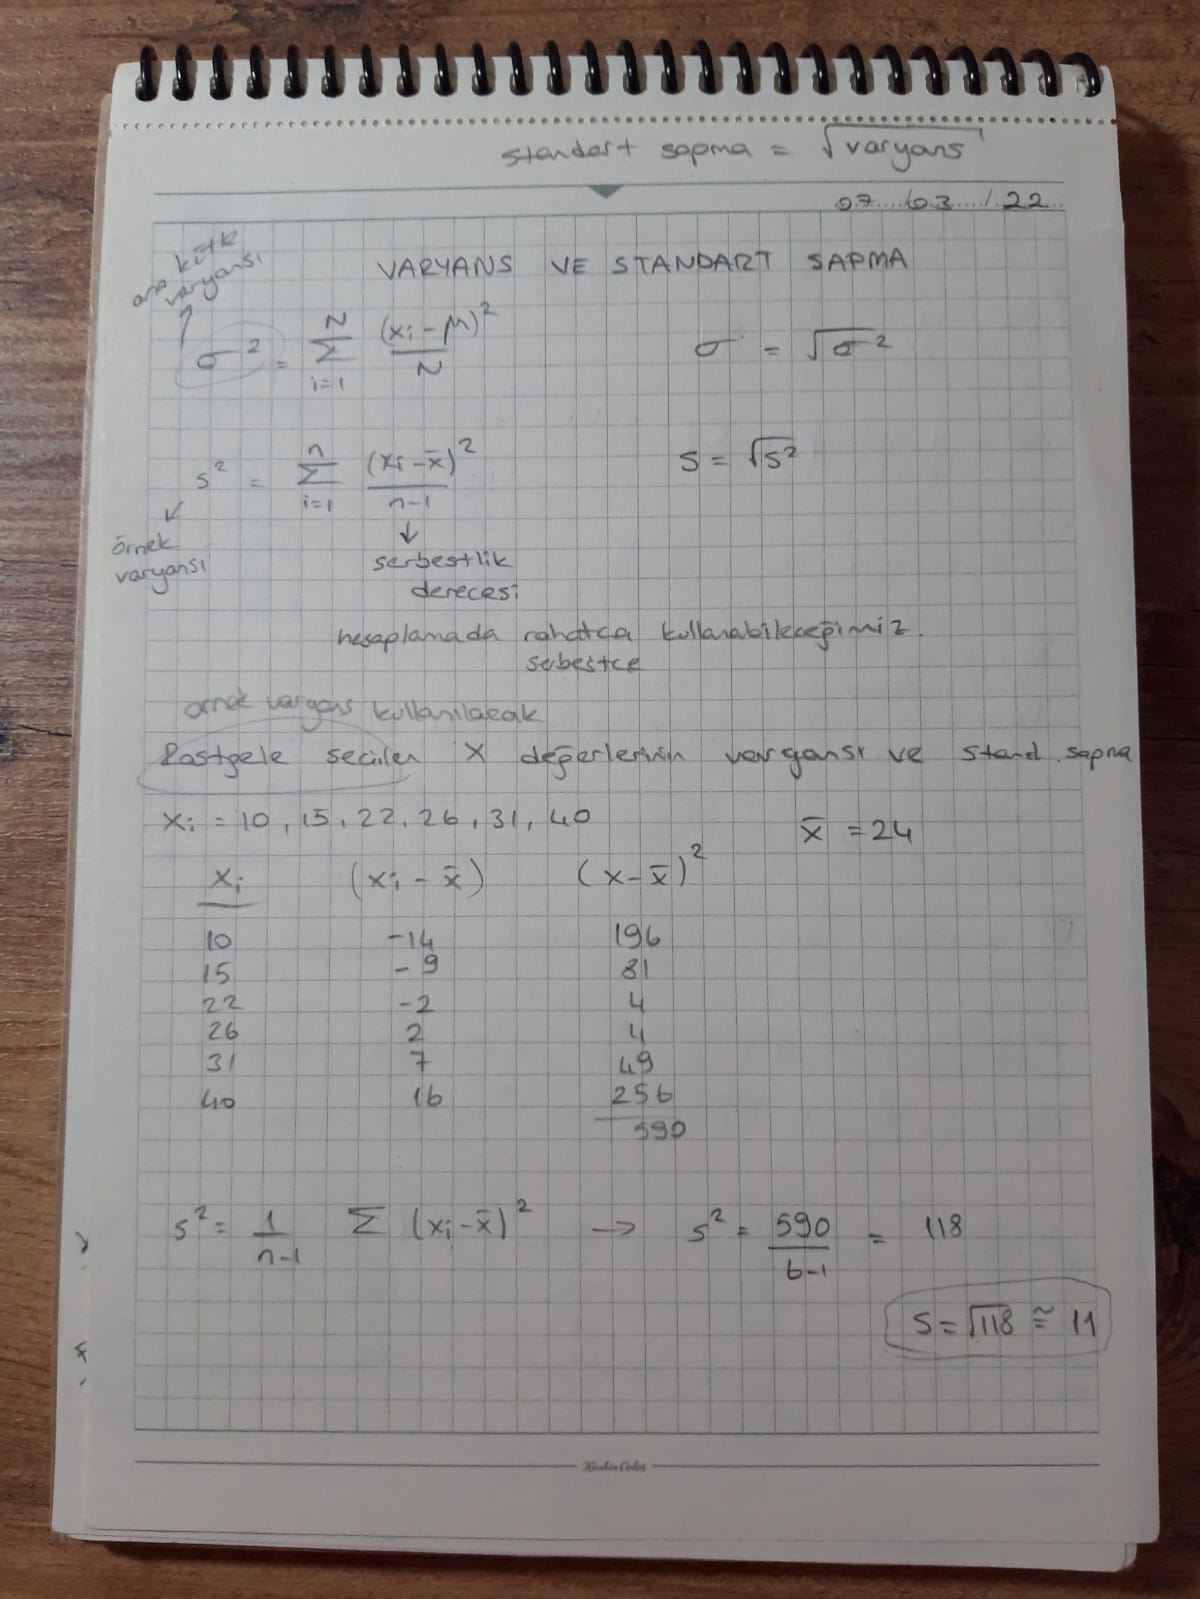 standart sapma = √varyans
07 / 03 / 22
VARYANS VE STANDART SAPMA
ana kütle
varyansı
σ² = Σ_{i=1}^{N} (xi - μ)² / N
σ = √σ²
s² = Σ_{i=1}^{n} (xi - x̄)² / n-1
s = √s²
örnek
varyansı
serbestlik
derecesi
hesaplamada rahatca kullanabileceğimiz
serbestce
örnek varyans kullanılacak
Rastgele seçilen X değerlerinin varyansı ve stand. sapma
xi = 10, 15, 22, 26, 31, 40
x̄ = 24
xi (xi - x̄) (x - x̄)²
10 -14 196
15 -9 81
22 -2 4
26 2 4
31 7 49
40 16 256
590
s² = 1/n-1 Σ (xi - x̄)² → s² = 590/6-1 = 118
s = √118 ≅ 11
Keskin Color